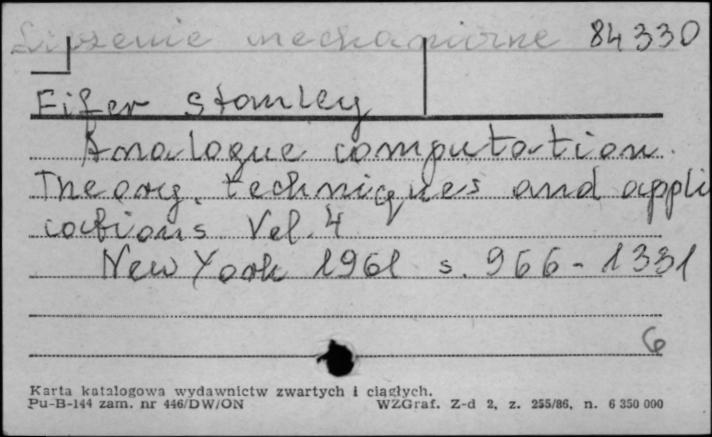 Liczenie mechaniczne 84330
Fifer Stanley
Analogue computation.
Theory, techniques and appli
cations Vol. 4
New York 1961 s. 966-1331
6
Karta katalogowa wydawnictw zwartych i ciągłych.
Pu-B-144 zam. nr 446/DW/ON WZGraf. Z-d 2, z. 255/86, n. 6 350 000